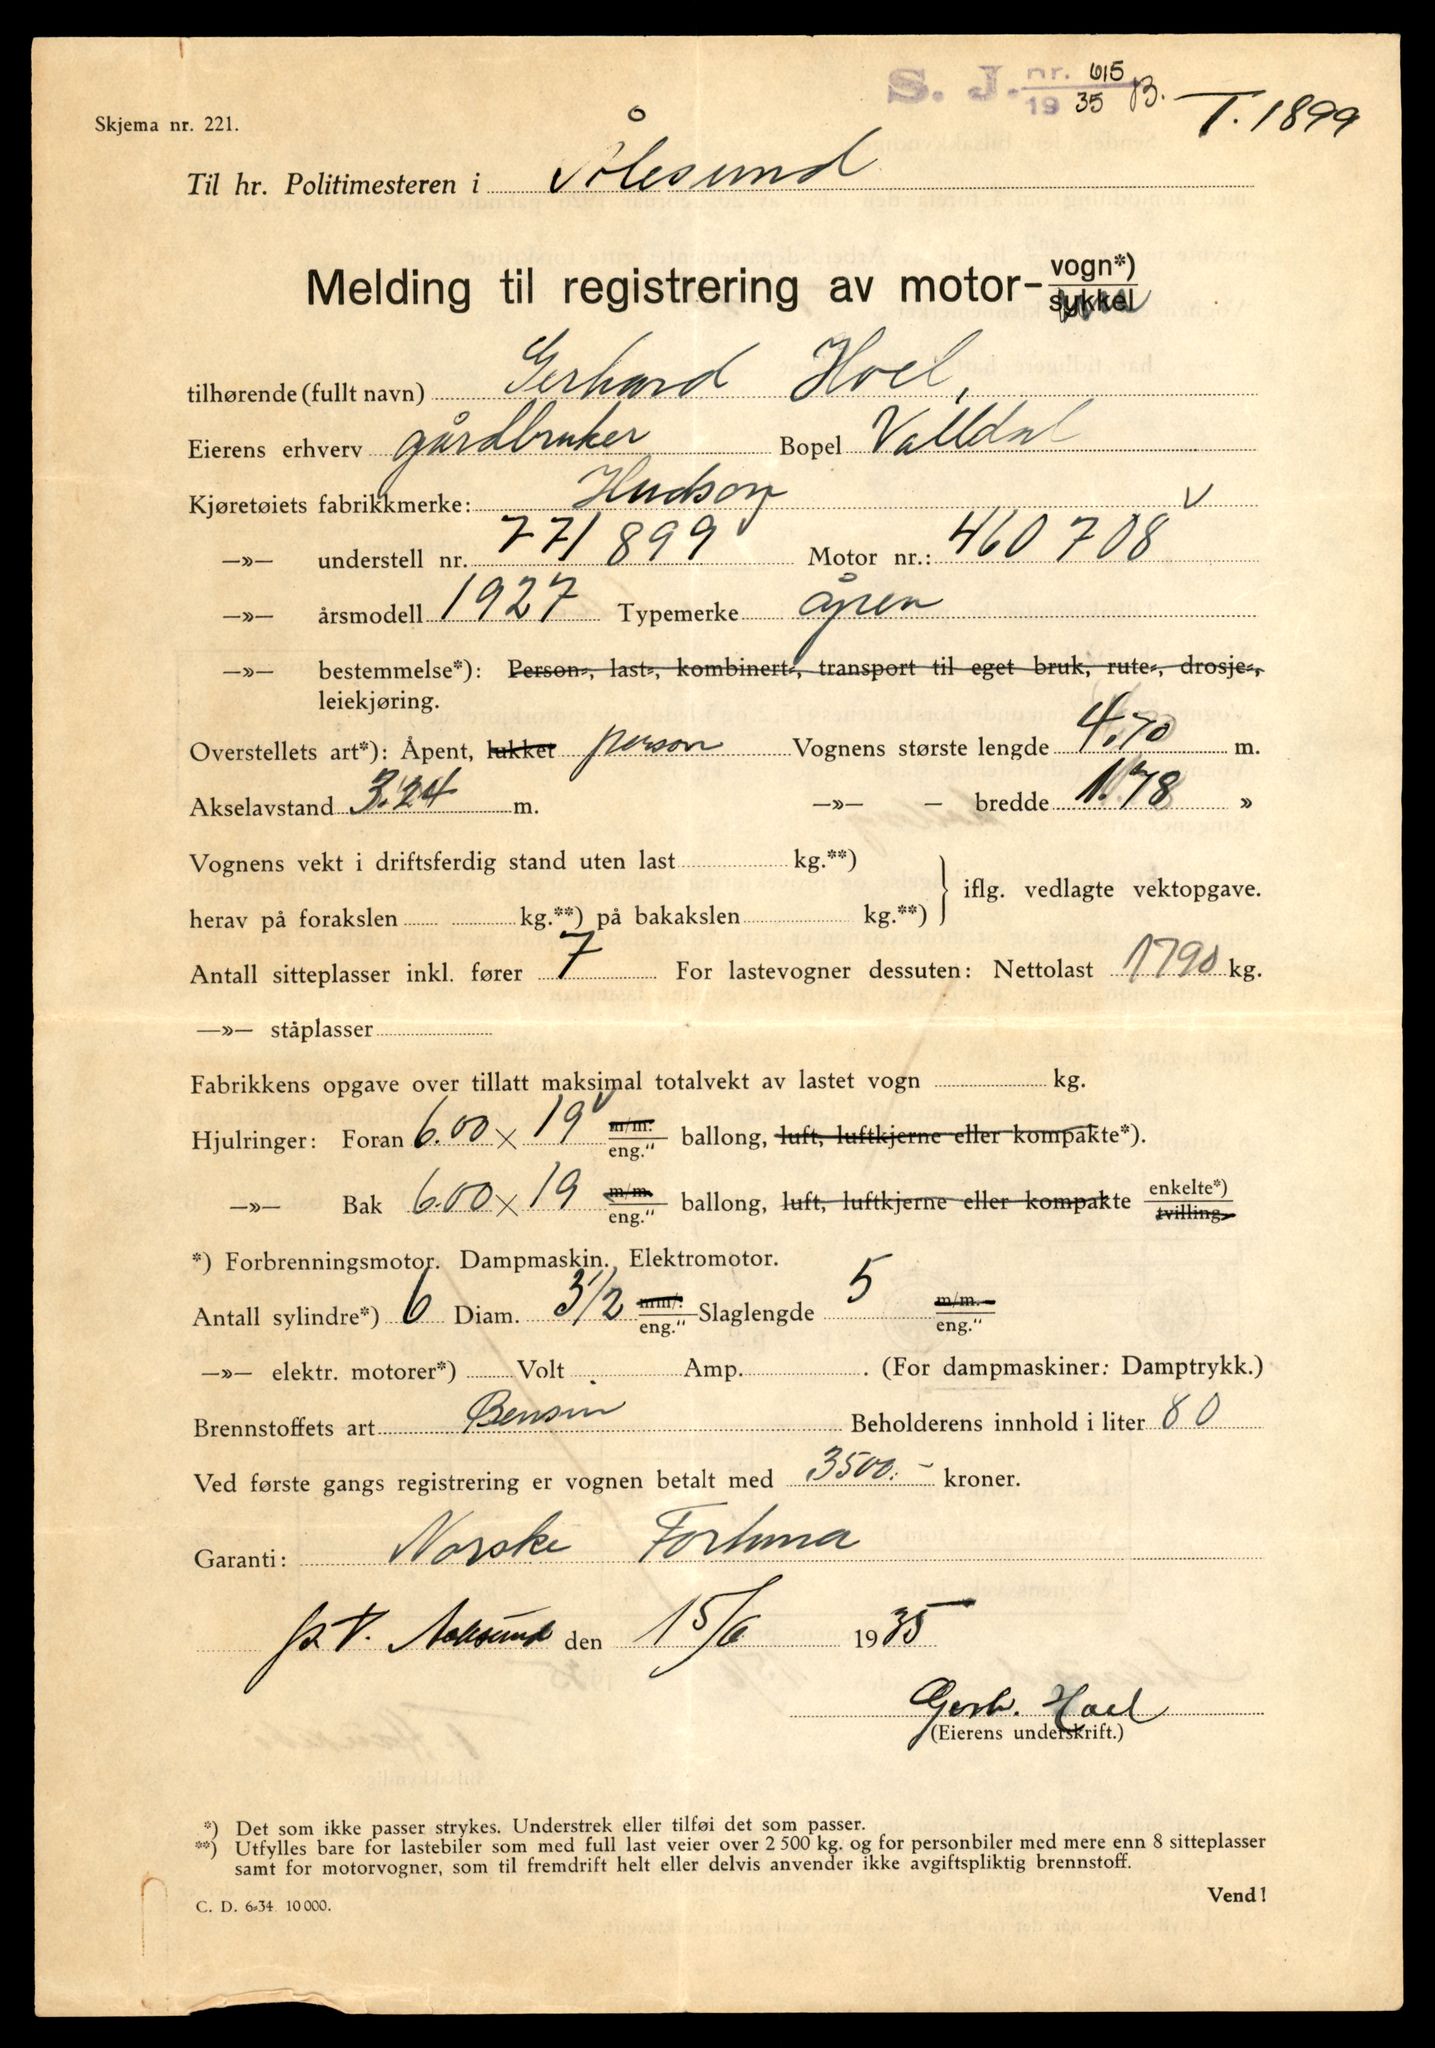 S. J. nr. 615
19 35 B. T. 1899
Skjema nr. 221.
Til hr. Politimesteren i Ålesund
Melding til registrering av motor- vogn*)
sykkel
tilhørende (fullt navn) Gerhard Hoel,
Eierens erhverv gårdbruker Bopel Valldal
Kjøretøiets fabrikkmerke: Hudson V
—»— understell nr. 771899 Motor nr.: 460708
—»— årsmodell 1927 Typemerke åpen
—»— bestemmelse*): Person-, last-, kombinert-, transport til eget bruk, rute-, drosje-,
leiekjøring.
Overstellets art*): Åpent, lukket person Vognens største lengde 4.70 m.
Akselavstand 3.24 m. —»— – bredde 1.78 »
Vognens vekt i driftsferdig stand uten last kg.**)
herav på forakslen kg.**) på bakakslen kg.**) } iflg. vedlagte vektopgave.
Antall sitteplasser inkl. fører 7 For lastevogner dessuten: Nettolast 1790 kg.
—»— ståplasser
Fabrikkens opgave over tillatt maksimal totalvekt av lastet vogn kg.
Hjulringer: Foran 6.00 × 19 m/m. eng." ballong, luft, luftkjerne eller kompakte*).
—»— Bak 6.00 × 19 m/m. eng." ballong, luft, luftkjerne eller kompakte enkelte*) tvilling.
*) Forbrenningsmotor. Dampmaskin. Elektromotor.
Antall sylindre*) 6 Diam. 3 1/2 mm/. eng." Slaglengde 5 m/m. eng."
—»— elektr. motorer*) Volt Amp. . (For dampmaskiner: Damptrykk.)
Brennstoffets art Bensin Beholderens innhold i liter 80
Ved første gangs registrering er vognen betalt med 3500.- kroner.
Garanti: Norske Fortuna
p. t. Aalesund den 15/6 1935
Gerh. Hoel
(Eierens underskrift.)
*) Det som ikke passer strykes. Understrek eller tilføi det som passer.
**) Utfylles bare for lastebiler som med full last veier over 2 500 kg. og for personbiler med mere enn 8 sitteplasser
samt for motorvogner, som til fremdrift helt eller delvis anvender ikke avgiftspliktig brennstoff.
Vend!
C. D. 6-34 10 000.